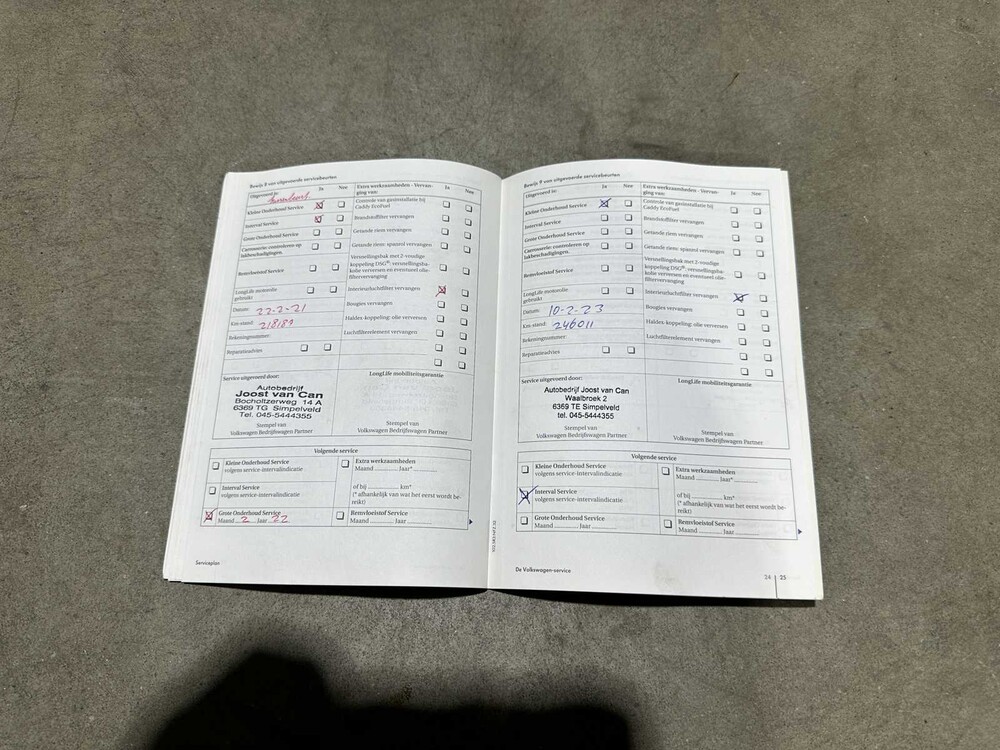 Bewijs 8 van uitgevoerde servicebeurten
Uitgevoerd is: Ja Nee
Kleine Onderhoud Service
Interval Service
Grote Onderhoud Service
Carrosserie: controleren op
lakbeschadigingen.
Remvloeistof Service
LongLife motorolie
gebruikt
Datum: 22-2-21
Km-stand: 218189
Rekeningnummer:
Reparatieadvies
Extra werkzaamheden - Vervan- Ja Nee
ging van:
Controle van gasinstallatie bij
Caddy EcoFuel
Brandstoffilter vervangen
Getande riem vervangen
Getande riem: spanrol vervangen
Versnellingsbak met 2-voudige
koppeling DSG®: versnellingsba-
kolie verversen en eventueel olie-
filtervervanging
Interieurluchtfilter vervangen
Bougies vervangen
Haldex-koppeling: olie verversen
Luchtfilterelement vervangen
Service uitgevoerd door:
Autobedrijf
Joost van Can
Bocholtzerweg 14 A
6369 TG Simpelveld
Tel. 045-5444355
Stempel van
Volkswagen Bedrijfswagen Partner
LongLife mobiliteitsgarantie
Stempel van
Volkswagen Bedrijfswagen Partner
Volgende service
Kleine Onderhoud Service
volgens service-intervalindicatie
Interval Service
volgens service-intervalindicatie
Grote Onderhoud Service
Maand 2 Jaar 22
Extra werkzaamheden
Maand Jaar*
of bij km*
(* afhankelijk van wat het eerst wordt be-
reikt)
Remvloeistof Service
Maand Jaar
Serviceplan
Bewijs 9 van uitgevoerde servicebeurten
Uitgevoerd is: Ja Nee
Kleine Onderhoud Service
Interval Service
Grote Onderhoud Service
Carrosserie: controleren op
lakbeschadigingen.
Remvloeistof Service
LongLife motorolie
gebruikt
Datum: 10-2-23
Km-stand: 246011
Rekeningnummer:
Reparatieadvies
Extra werkzaamheden - Vervan- Ja Nee
ging van:
Controle van gasinstallatie bij
Caddy EcoFuel
Brandstoffilter vervangen
Getande riem vervangen
Getande riem: spanrol vervangen
Versnellingsbak met 2-voudige
koppeling DSG®: versnellingsba-
kolie verversen en eventueel olie-
filtervervanging
Interieurluchtfilter vervangen
Bougies vervangen
Haldex-koppeling: olie verversen
Luchtfilterelement vervangen
Service uitgevoerd door:
Autobedrijf Joost van Can
Waalbroek 2
6369 TE Simpelveld
tel. 045-5444355
Stempel van
Volkswagen Bedrijfswagen Partner
LongLife mobiliteitsgarantie
Stempel van
Volkswagen Bedrijfswagen Partner
Volgende service
Kleine Onderhoud Service
volgens service-intervalindicatie
Interval Service
volgens service-intervalindicatie
Grote Onderhoud Service
Maand Jaar
Extra werkzaamheden
Maand Jaar*
of bij km*
(* afhankelijk van wat het eerst wordt be-
reikt)
Remvloeistof Service
Maand Jaar
De Volkswagen-service
24 25